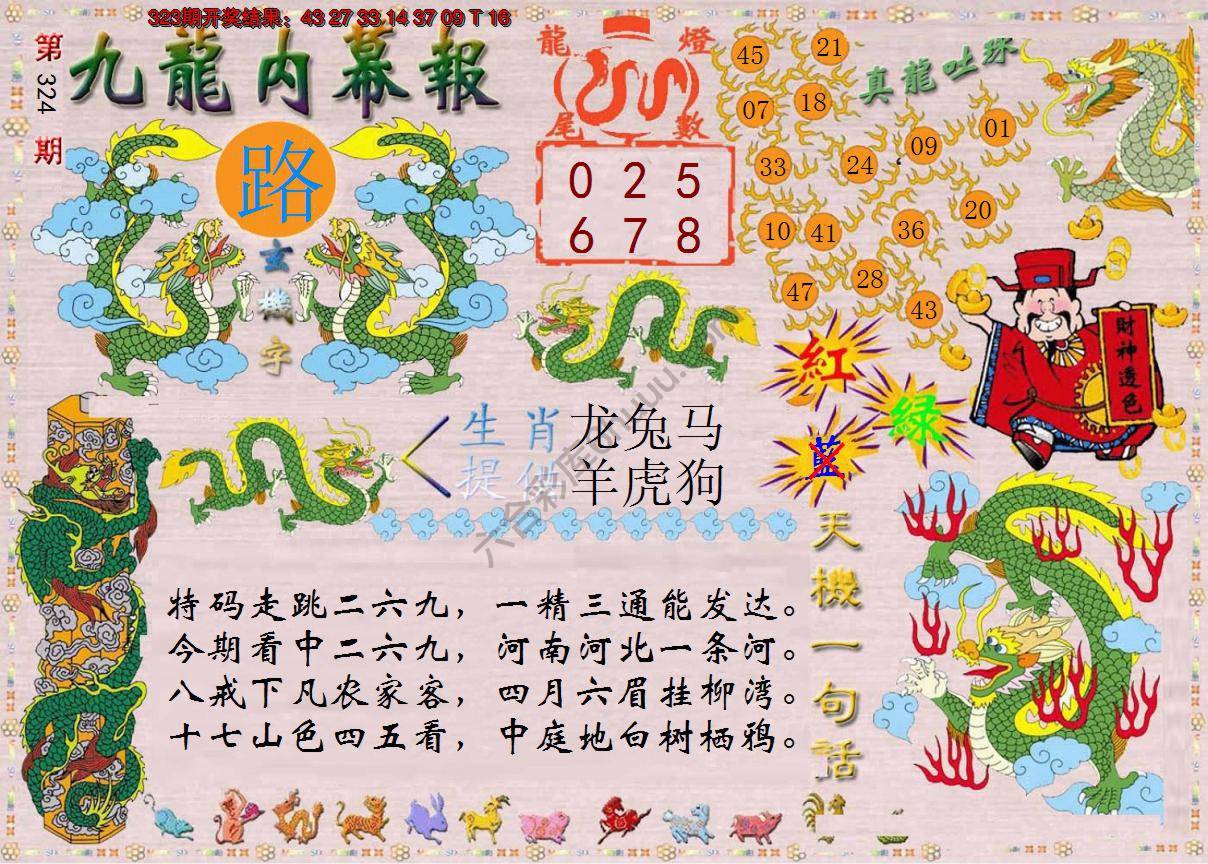 323期开奖结果：43 27 33 14 37 09 T 16
第324期
九龍内幕報
路
玄機字
龍燈
尾數
0 2 5
6 7 8
真龍吐珠
45 21
07 18
33 24 09 01
10 41 36 20
47 28 43
財神透色
紅
綠
藍
生肖 龙兔马
提供 羊虎狗
六合彩库
天機一句話
特码走跳二六九，一精三通能发达。
今期看中二六九，河南河北一条河。
八戒下凡农家客，四月六眉挂柳湾。
十七山色四五看，中庭地白树栖鸦。